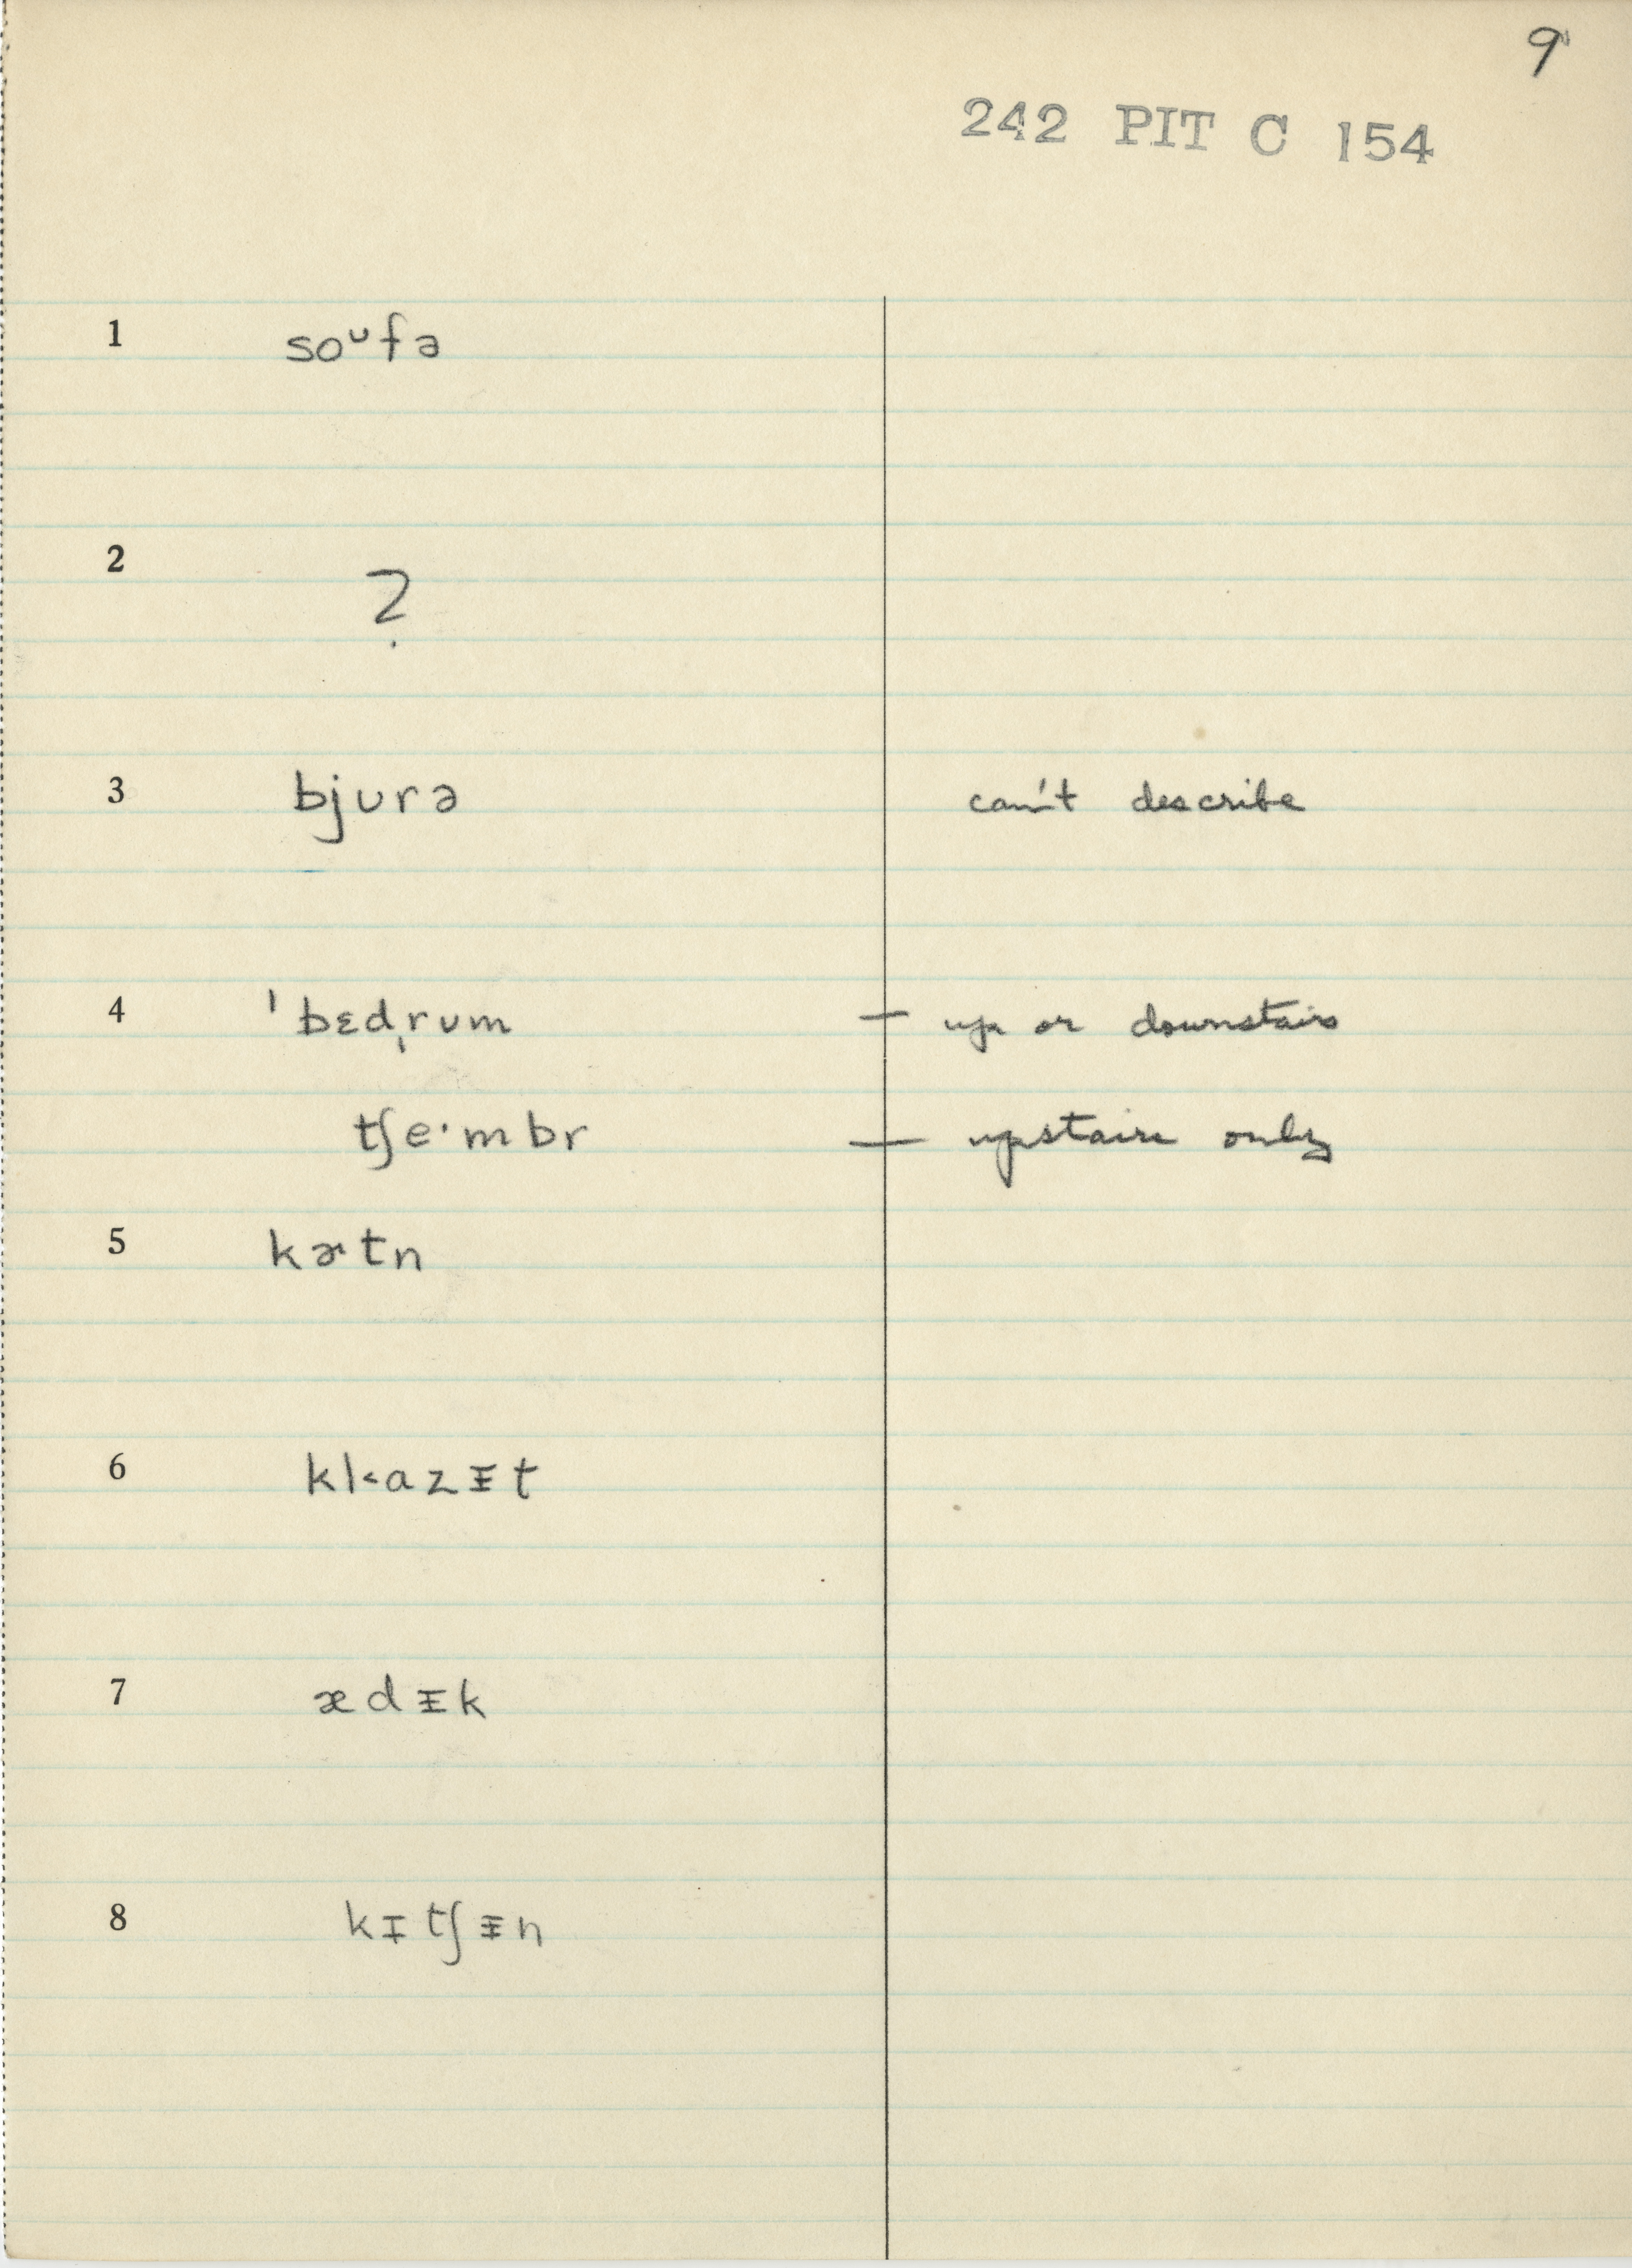 9
242 PIT C 154
1 soᴜfə
2 ?
3 bjʊrə can't describe
4 ˈbɛdˌrʊm — up or downstairs
tʃe·mbr — upstairs only
5 kɚtn
6 kl˂ɑzᵻt
7 ædᵻk
8 kɪtʃᵻn